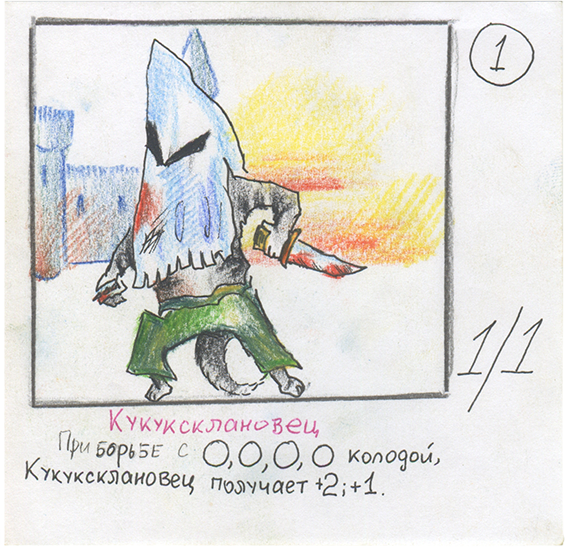 1
1/1
Кукуксклановец
При борьбе с O, O, O, O колодой,
Кукуксклановец получает +2;+1.